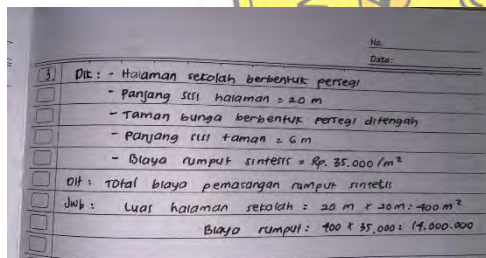 No.
Date:
3. Dik : - Halaman sekolah berbentuk persegi
- Panjang sisi halaman = 20 m
- Taman bunga berbentuk persegi ditengah
- Panjang sisi taman = 6 m
- Biaya rumput sintesis = Rp. 35.000 /m²
Dit : Total biaya pemasangan rumput sintetis
Jwb : Luas halaman sekolah : 20 m x 20 m : 400 m²
Biaya rumput : 400 x 35.000 : 14.000.000